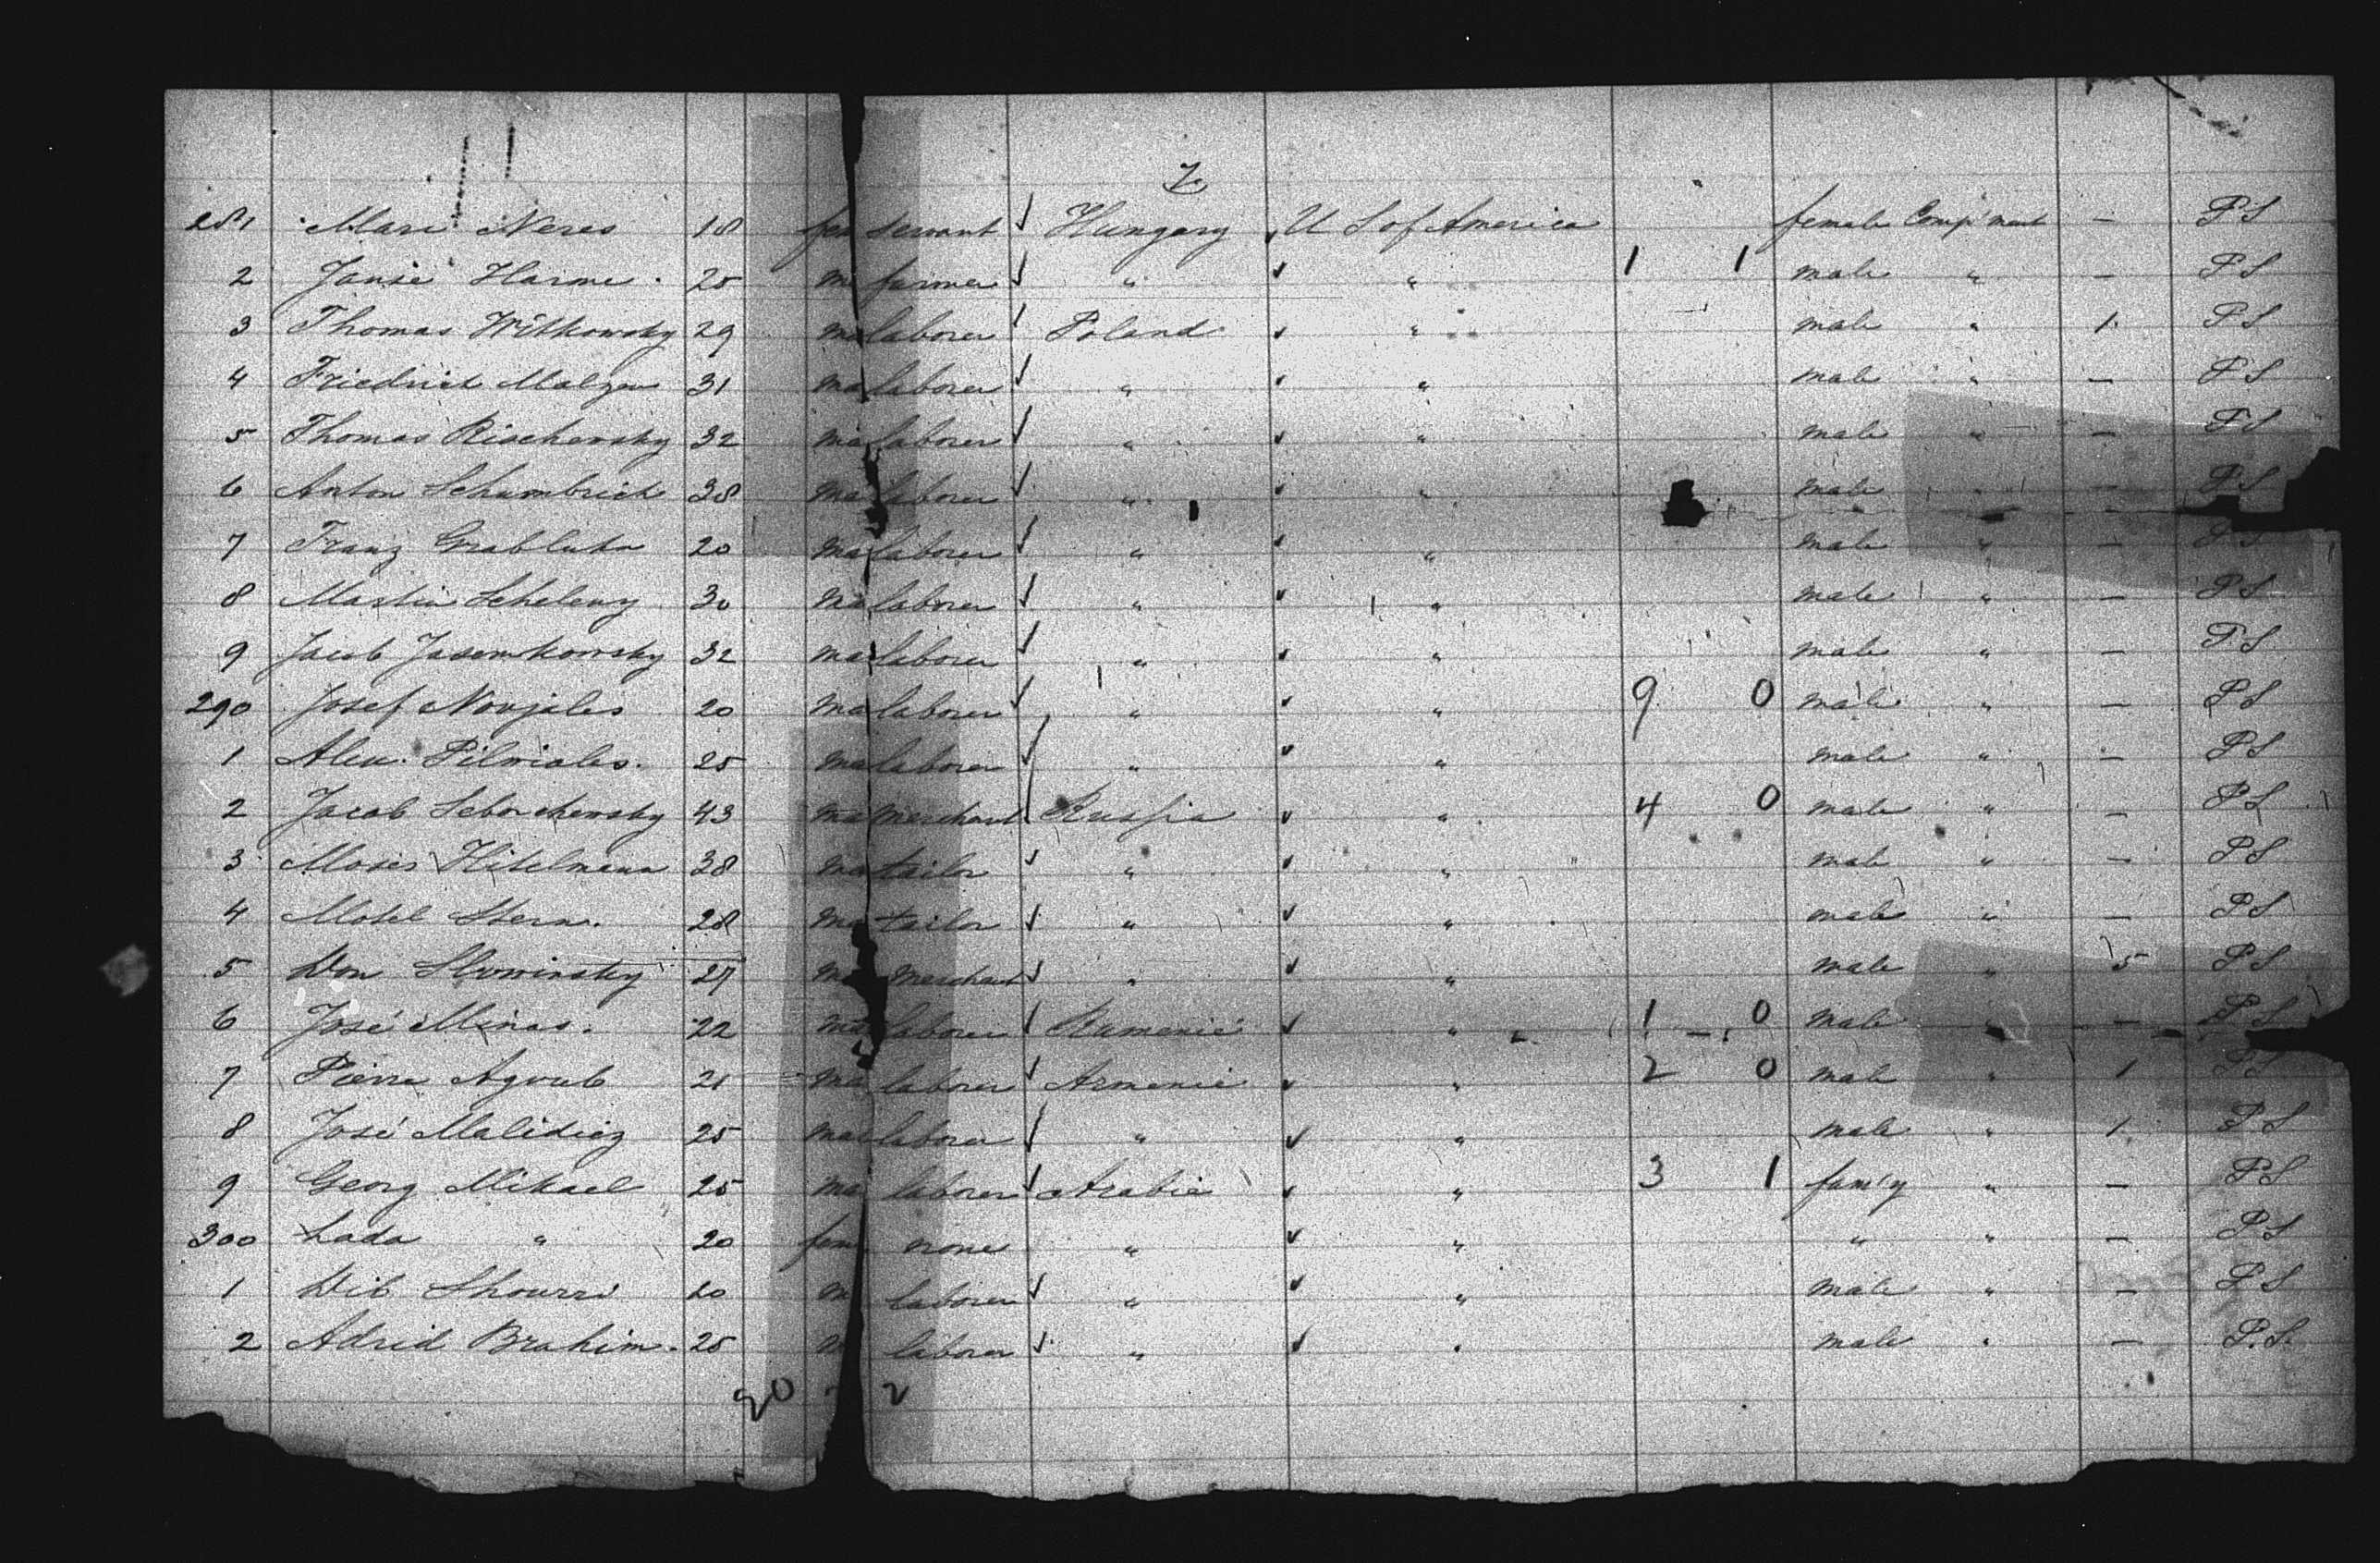 7
281 Mari Neres 18 fem servant Hungary U S of America female Comp'ment — P S
2 Jansie Harme 25 m farmer " " 1 1 male " — P S
3 Thomas Witkowsky 29 ma laborer Poland " male " 1 P S
4 Friedrich Malzen 31 ma laborer " " male " — P S
5 Thomas Rischewsky 32 ma laborer " " male " — P S
6 Anton Schumbrich 38 ma laborer " " male " — P S
7 Franz 20 ma laborer " " male " — P S
8 Martin Schelenz 30 ma laborer " " male " — P S
9 Jacob Jasemkowsky 32 ma laborer " " male " — P S
290 Josef 20 ma laborer " " 9 0 male " — P S
1 Alex. 25 ma laborer " " male " — P S
2 Jacob 43 ma merchant Russia " 4 0 male " — P S
3 Moses Hitelmann 38 ma tailor " " male " — P S
4 Motel Stern. 28 ma tailor " " male " — P S
5 Slowinsky 27 ma merchant " " male " 5 P S
6 José Minas. 22 ma laborer Rumenie " 1 0 male " — P S
7 Pierre Agoub 21 ma laborer Armenie " 2 0 male " 1 P S
8 José 25 mal laborer " " male " 1 P S
9 Georg Mikael 25 ma laborer Arabie " 3 1 fam'y " — P S
300 Lada " 20 fem none " " " " — P S
1 Dib Shourri 20 m laborer " " male " — P S
2 Adrid Brahim. 25 m laborer " " male " — P. S.
20 2